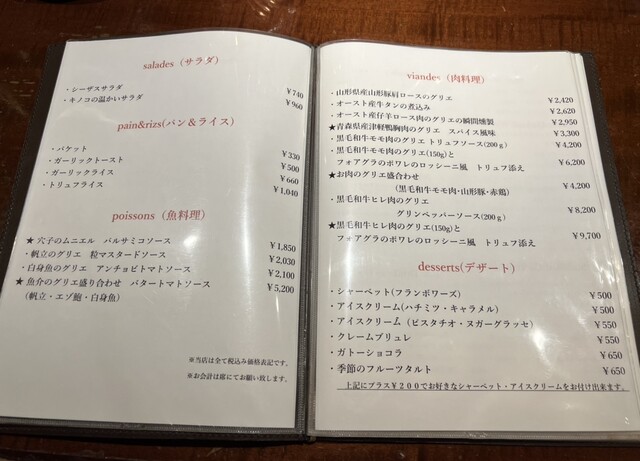 salades（サラダ）
・シーザスサラダ ¥740
・キノコの温かいサラダ ¥960
pain&rizs(パン＆ライス)
・バケット ¥330
・ガーリックトースト ¥500
・ガーリックライス ¥660
・トリュフライス ¥1,040
poissons（魚料理）
★穴子のムニエル　バルサミコソース ¥1,850
・帆立のグリエ　粒マスタードソース ¥2,030
・白身魚のグリエ　アンチョビトマトソース ¥2,100
★魚介のグリエ盛り合わせ　バタートマトソース ¥5,200
（帆立・エゾ鮑・白身魚）
※当店は全て税込み価格表記です。
※お会計は席にてお願い致します。
viandes（肉料理）
・山形県産山形豚肩ロースのグリエ ¥2,420
・オースト産牛タンの煮込み ¥2,620
・オースト産仔羊ロース肉のグリエの瞬間燻製 ¥2,950
★青森県産津軽鴨胸肉のグリエ　スパイス風味 ¥3,300
・黒毛和牛モモ肉のグリエ トリュフソース(200ｇ) ¥4,200
・黒毛和牛モモ肉のグリエ(150g)と
フォアグラのポワレのロッシーニ風　トリュフ添え ¥6,200
★お肉のグリエ盛合わせ
（黒毛和牛モモ肉･山形豚･赤鶏） ¥4,200
・黒毛和牛ヒレ肉のグリエ
グリンペッパーソース(200ｇ) ¥8,200
★黒毛和牛ヒレ肉のグリエ(150g)と
フォアグラのポワレのロッシーニ風　トリュフ添え ¥9,700
desserts(デザート)
・シャーベット(フランボワーズ) ¥500
・アイスクリーム(ハチミツ・キャラメル) ¥500
・アイスクリーム（ピスタチオ・ヌガーグラッセ） ¥550
・クレームブリュレ ¥550
・ガトーショコラ ¥650
・季節のフルーツタルト ¥650
上記にプラス¥２００でお好きなシャーベット・アイスクリームをお付け出来ます。